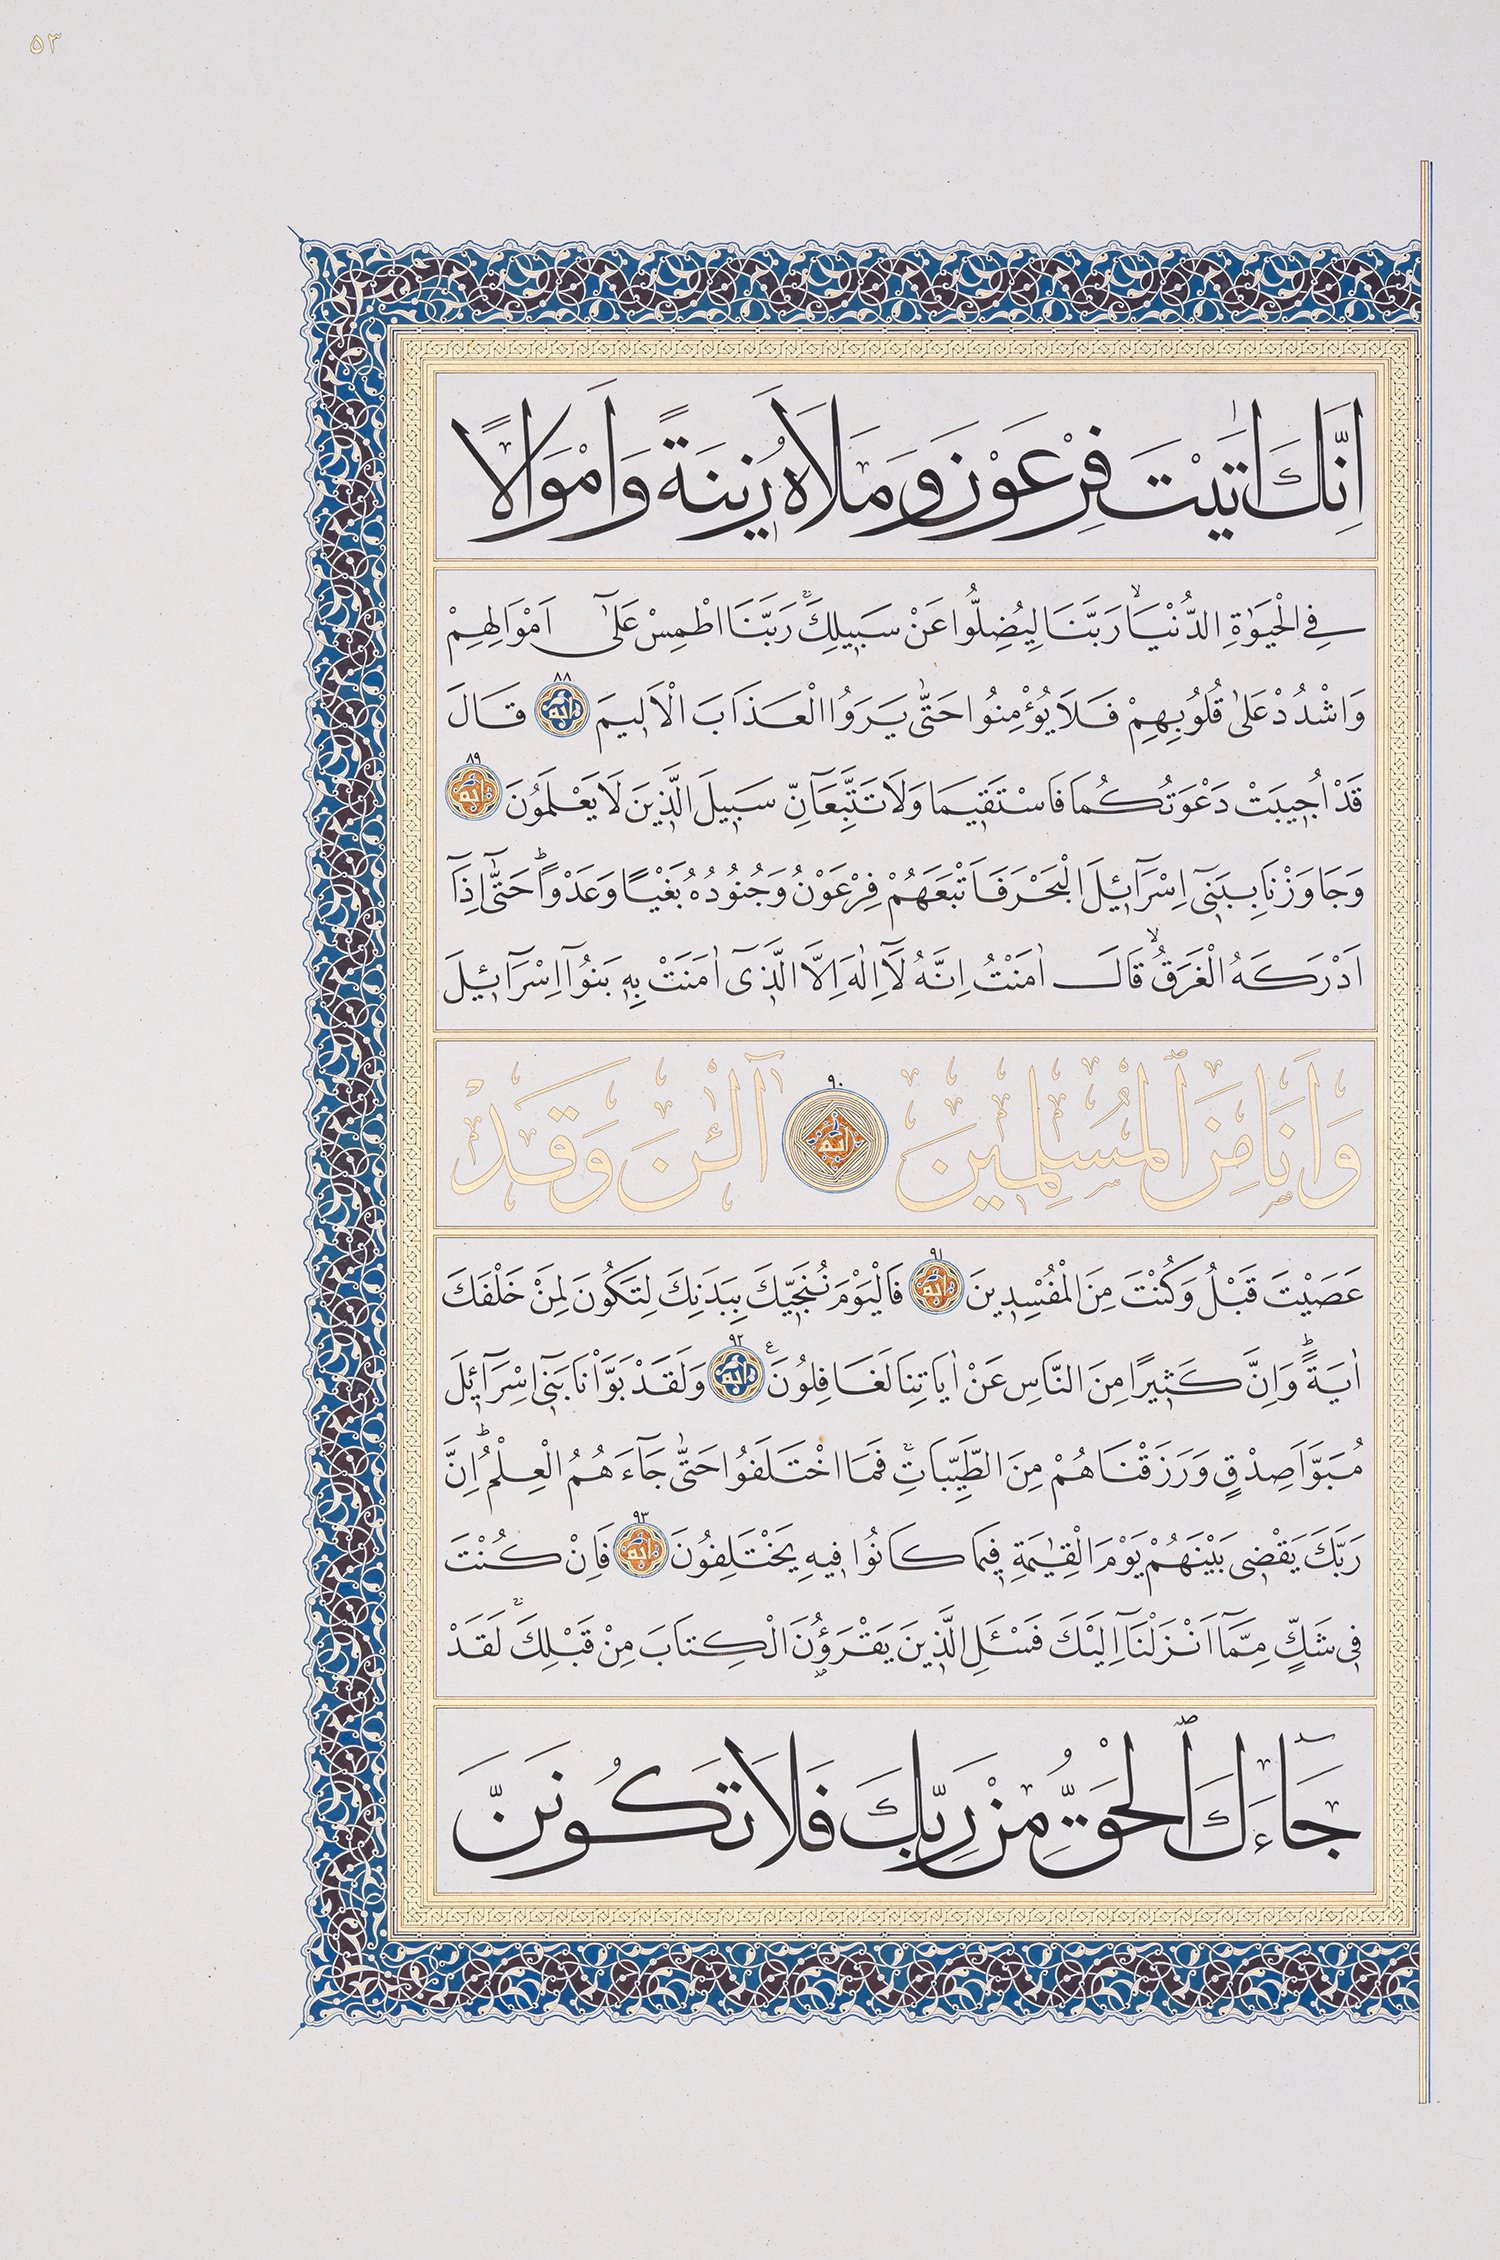 ٥٣
اِنَّكَ اٰتَيْتَ فِرْعَوْنَ وَمَلَاَهُ زِينَةً وَاَمْوَالًا
فِي الْحَيٰوةِ الدُّنْيَاۙ رَبَّنَا لِيُضِلُّوا عَنْ سَبِيلِكَۚ رَبَّنَا اطْمِسْ عَلٰٓى اَمْوَالِهِمْ
وَاشْدُدْ عَلٰى قُلُوبِهِمْ فَلَا يُؤْمِنُوا حَتّٰى يَرَوُا الْعَذَابَ الْاَلِيمَ ٨٨ قَالَ
قَدْ اُجِيبَتْ دَعْوَتُكُمَا فَاسْتَقِيمَا وَلَا تَتَّبِعَٓانِّ سَبِيلَ الَّذِينَ لَا يَعْلَمُونَ ٨٩
وَجَاوَزْنَا بِبَنِٓي اِسْرَٓائِلَ الْبَحْرَ فَاَتْبَعَهُمْ فِرْعَوْنُ وَجُنُودُهُ بَغْيًا وَعَدْوًاۜ حَتّٰٓى اِذَٓا
اَدْرَكَهُ الْغَرَقُۙ قَالَ اٰمَنْتُ اَنَّهُ لَٓا اِلٰهَ اِلَّا الَّذِٓي اٰمَنَتْ بِهِ بَنُٓوا اِسْرَٓائِلَ
وَاَنَا مِنَ ٱلْمُسْلِمِينَ ٩٠ آٰلْـٰٔنَ وَقَدْ
عَصَيْتَ قَبْلُ وَكُنْتَ مِنَ الْمُفْسِدِينَ ٩١ فَالْيَوْمَ نُنَجِّيكَ بِبَدَنِكَ لِتَكُونَ لِمَنْ خَلْفَكَ
اٰيَةًۜ وَاِنَّ كَثِيرًا مِنَ النَّاسِ عَنْ اٰيَاتِنَا لَغَافِلُونَ۟ ٩٢ وَلَقَدْ بَوَّأْنَا بَنِٓي اِسْرَٓائِلَ
مُبَوَّاَ صِدْقٍ وَرَزَقْنَاهُمْ مِنَ الطَّيِّبَاتِۚ فَمَا اخْتَلَفُوا حَتّٰى جَٓاءَهُمُ الْعِلْمُۜ اِنَّ
رَبَّكَ يَقْضِي بَيْنَهُمْ يَوْمَ الْقِيٰمَةِ فِيمَا كَانُوا فِيهِ يَخْتَلِفُونَ ٩٣ فَاِنْ كُنْتَ
فِي شَكٍّ مِمَّٓا اَنْزَلْنَٓا اِلَيْكَ فَسْـَٔلِ الَّذِينَ يَقْرَؤُ۫نَ الْكِتَابَ مِنْ قَبْلِكَۚ لَقَدْ
جَٓاءَكَ ٱلْحَقُّ مِنْ رَبِّكَ فَلَا تَكُونَنَّ